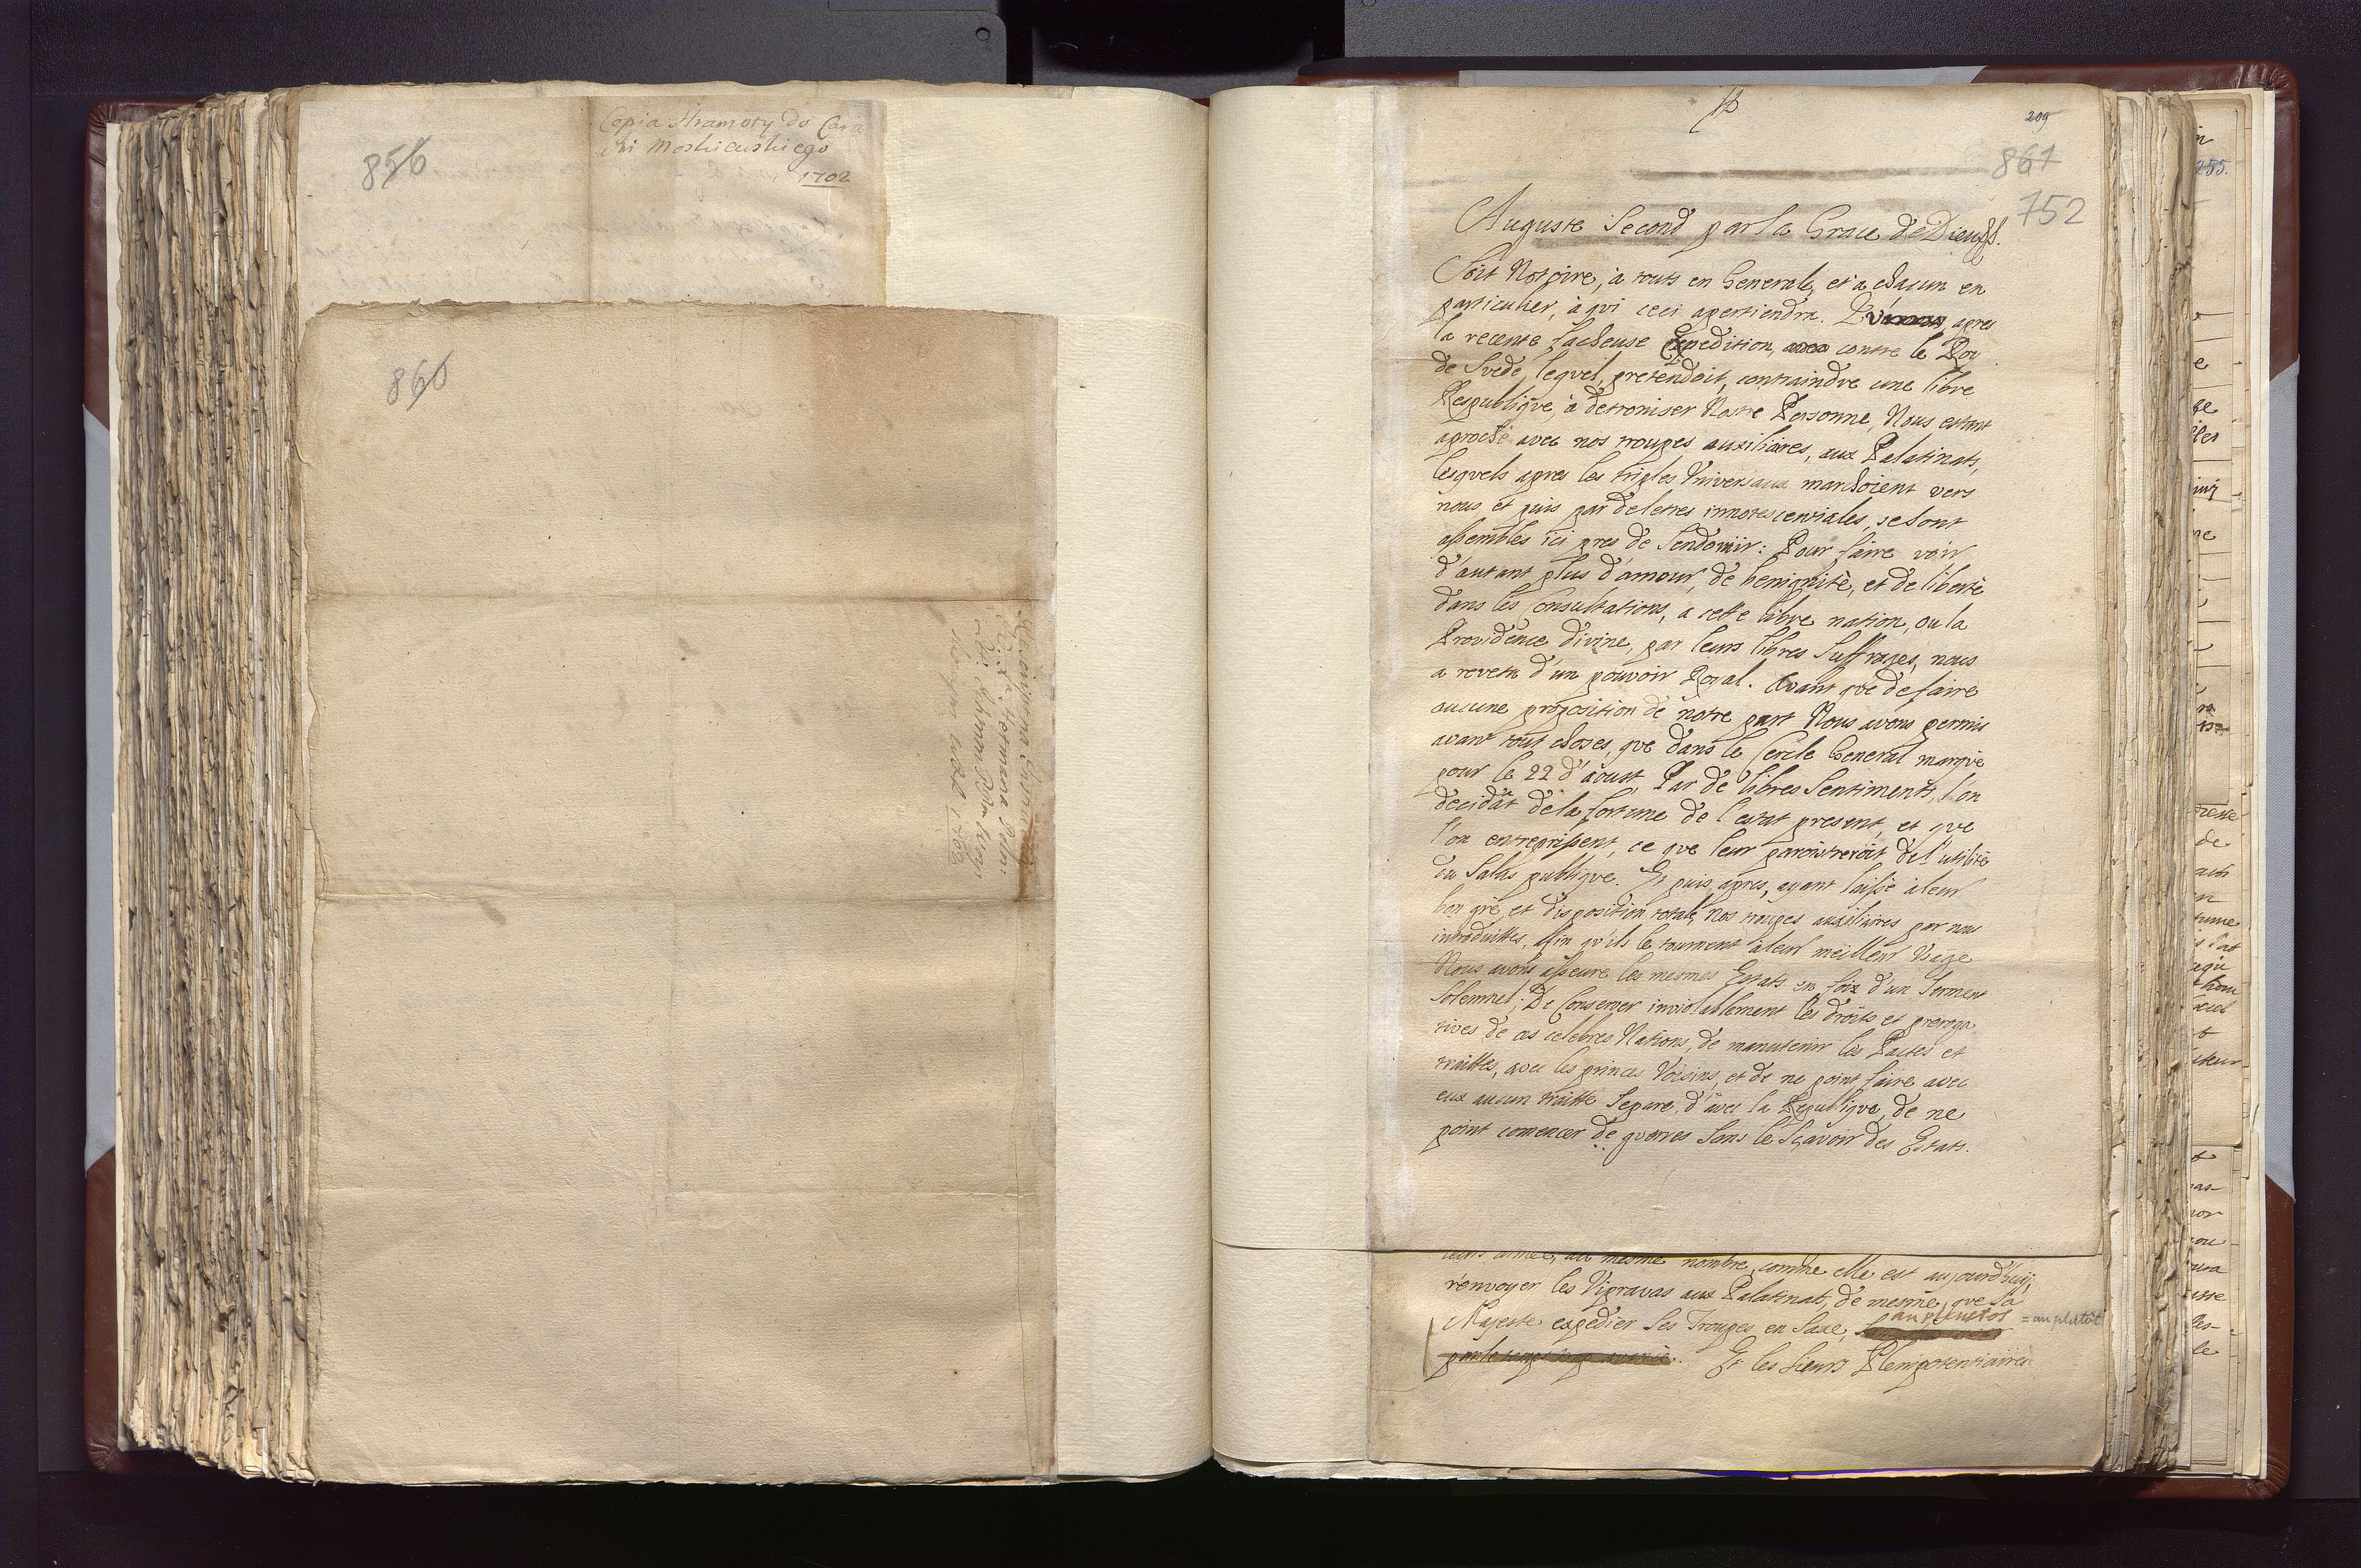 Copia Hramoty do Cara
Moskiewskiego
1702
856
860
1702
209
861
752
Auguste Second par la Grace de Dieu
Soit Notoire, à touts en Generale, et a chasun en
particulier, à qui ceci apertiendra. apres
la recente facheuse Expedition, contre le Roy
de Svede, lequel pretendoit, contraindre une libre
Respublique, à detroniser Nostre Personne, Nous estant
aproché avec nos troupes auxiliaires, aux Palatinats,
lesquels apres les triples Universaux marchoient vers
nous, et puis par de letres innotescentiales, se sont
assembles ici pres de Sendomir: Pour faire voir
d'autant plus d'amour, de benignitè, et de libertè
dans les Consultations, a cette libre nation, ou la
Providence divine, par leurs libres Suffrages, nous
a revetu d'un pouvoir Royal. Avant que de faire
aucune proposition de notre part Nous avons permis
avant tout choses, que dans le Cercle General marquè
pour le 22 d'aoust, Par de libres Sentiments, l'on
decidât de la fortune de l'estat present, et que
l'on entreprissent, ce que leur paroistreroit de l'utilitè
du Salus publique. Et puis apres, ayant laissè à leur
bon grè, et disposition totale, Nos troupes auxiliaires par nous
introduittes, Afin qu'ils le tournent à leur meilleur Usage
Nous avons asseure les mesmes Estats en foix d'un Serment
Solemnel; De Conserver inviolablement les droits et preroga
tives de ces celebres Nations, de manutenir les Pactes et
traittes, avec les princes Voisins, et de ne point faire avec
eux aucun traitte Separe d'avec la Republique, de ne
point comencer de guerres Sans le Sçavoir des Estats.
leurs armee, au mesme nombre, comme elle est aujourd'huij,
renvoyer les Vipravas aux Palatinats, de mesme, que Sa
au plustos = au plutôt
Majeste expedier Ses Troupes en Saxe,
Et les Sieurs Plenipotentiaires